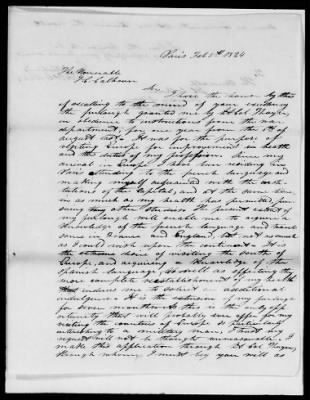 Paris Feb 5th 1824
The Honorable
J. C. Calhoun
Sir I have the honor by this
of recalling to the mind of your excellency
the furlough granted me by Lt Col Thayer,
in obedience to instructions from the war
department, for one year from the 1st of
august. It was for the purpose of
visiting Europe for improvement in health
and the duties of my profession. Since my
arrival in Europe I have been residing in
Paris attending to the french language and
making myself acquainted with the
of the Capital, and at the same time,
in as much as my health has permitted,
other studies. The present extent of
my furlough will enable me to acquire a
knowledge of the french language and travel
some in France and England, but not as much
as I could wish upon the continent. It is
the desire of visiting the south of
Europe, and acquiring a knowledge of the
Spanish language, as well as effecting the
more complete reestablishment of my health
that induces me to solicit an additional
indulgence. It is the extension of my furlough
for seven months. As this is the only opp-
ortunity that will probably ever offer for my
visiting the countries of Europe so particularly
interesting to a military man, I trust my
request will not be thought unreasonable. I
make this application through Lt Col Thayer,
through whom, I must beg you will as